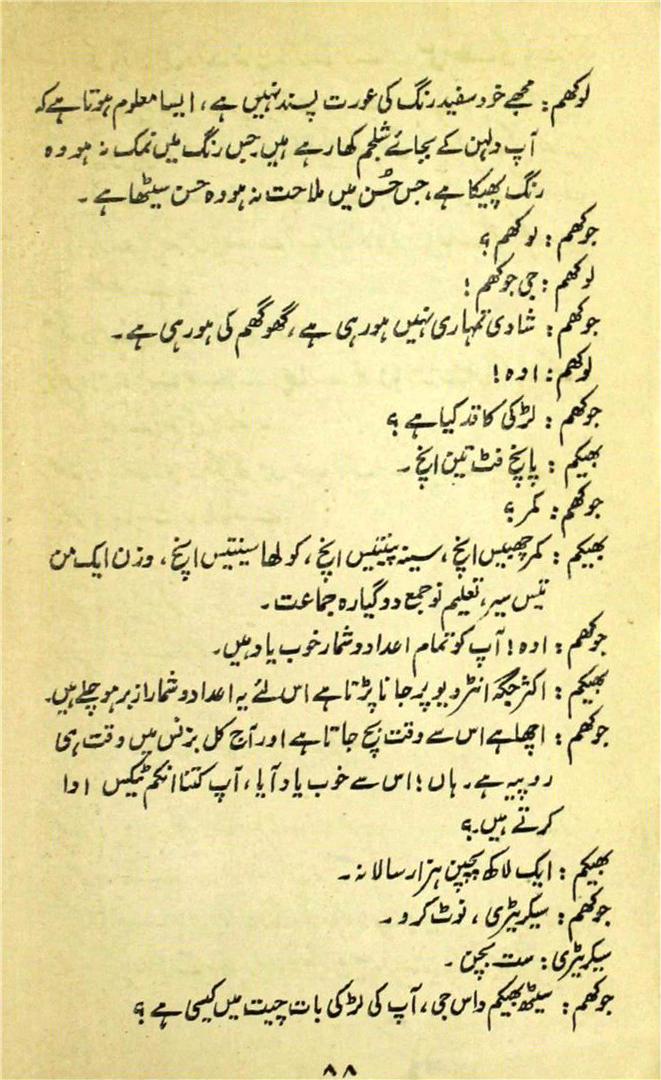 لوکھم: مجھے خود سفید رنگ کی عورت پسند نہیں ہے، ایسا معلوم ہوتا ہے کہ
آپ دلہن کے بجائے شلجم کھا رہے ہیں۔ جس رنگ میں نمک نہ ہو وہ
رنگ پھیکا ہے، جس حُسن میں ملاحت نہ ہو وہ حسن سیٹھا ہے۔
جوکھم: لوکھم؟
لوکھم: جی جوکھم!
جوکھم: شادی تمہاری نہیں ہو رہی ہے، گھوگھم کی ہو رہی ہے۔
لوکھم: اوہ!
جوکھم: لڑکی کا قد کیا ہے؟
بھیکم: پانچ فٹ تین انچ۔
جوکھم: کمر؟
بھیکم: کمر چھبیس انچ، سینہ پنتیس انچ، کولھا سینتیس انچ، وزن ایک من
تیئس سیر، تعلیم نو جمع دو گیارہ جماعت۔
جوکھم: اوہ! آپ کو تمام اعداد و شمار خوب یاد ہیں۔
بھیکم: اکثر جگہ انٹرویو پر جانا پڑتا ہے اس لئے یہ اعداد و شمار ازبر ہو چلے ہیں۔
جوکھم: اچھا ہے اس سے وقت بچ جاتا ہے اور آج کل بزنس میں وقت ہی
روپیہ ہے۔ ہاں! اس سے خوب یاد آیا، آپ کتنا انکم ٹیکس ادا
کرتے ہیں۔؟
بھیکم: ایک لاکھ پچپن ہزار سالانہ۔
جوکھم: سیکریٹری، نوٹ کرو۔
سیکریٹری: ست بچن۔
جوکھم: سیٹھ بھیکم داس جی، آپ کی لڑکی بات چیت میں کیسی ہے؟
۸۸